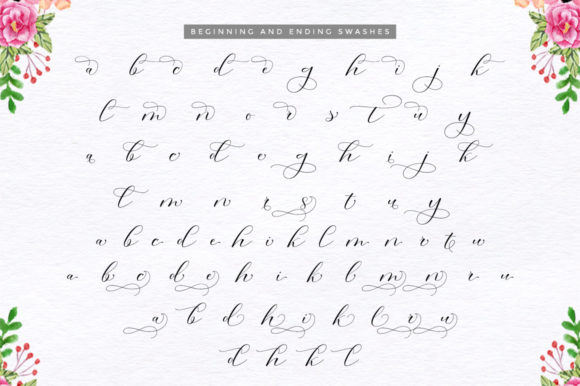 BEGINNING AND ENDING SWASHES
a b c d e g h i j k
l m n o r s t u y
a b c d o g h i j k
t m n r s t u y
a b c d e h i k l m n o t u
a b c d e h i k l m n r u
a b d h i k l o u
d h k l